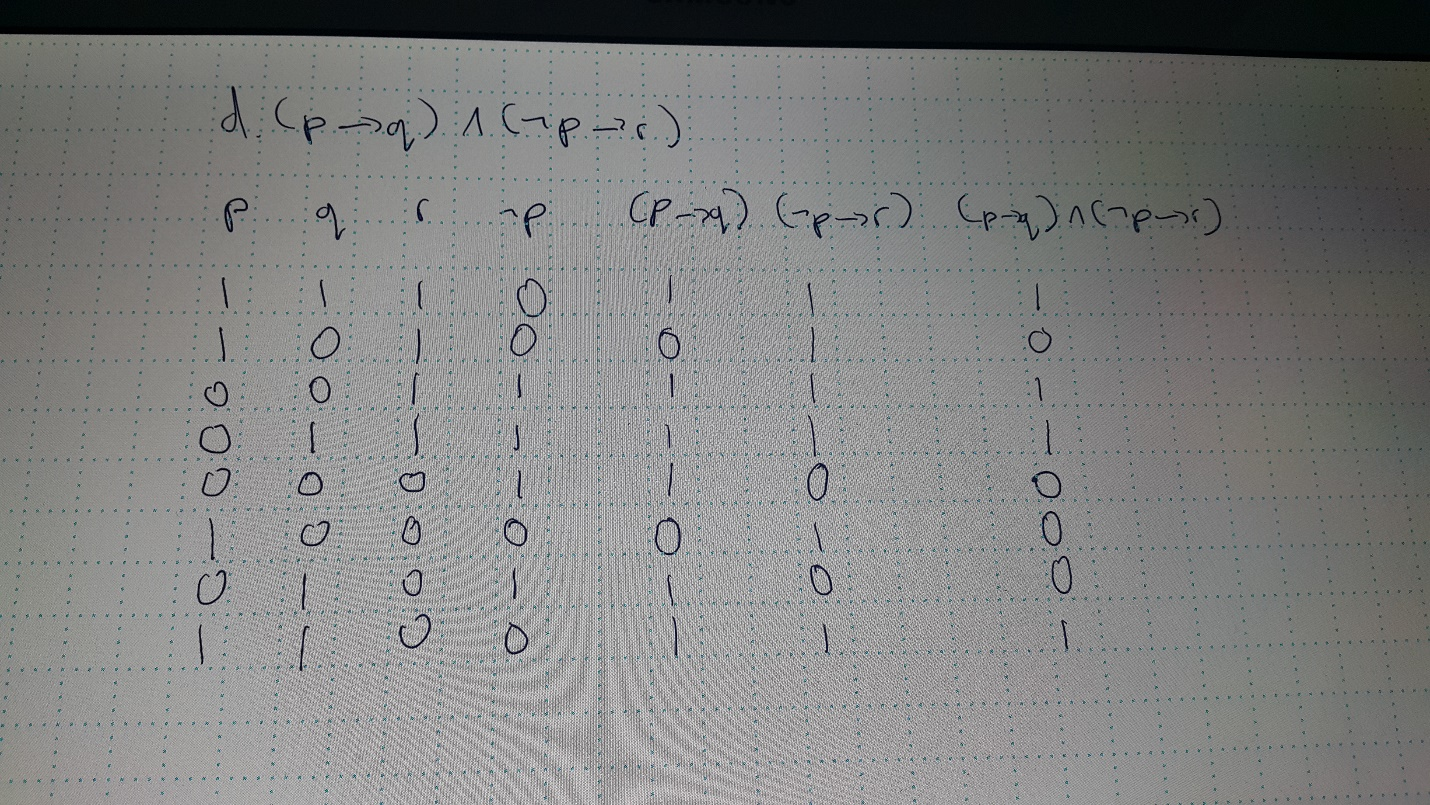 d. (p→q) ∧ (¬p→r)
p q r ¬p (p→q) (¬p→r) (p→q)∧(¬p→r)
1 1 1 0 1 1 1
1 0 1 0 0 1 0
0 0 1 1 1 1 1
0 1 1 1 1 1 1
0 0 0 1 1 0 0
1 0 0 0 0 1 0
0 1 0 1 1 0 0
1 1 0 0 1 1 1